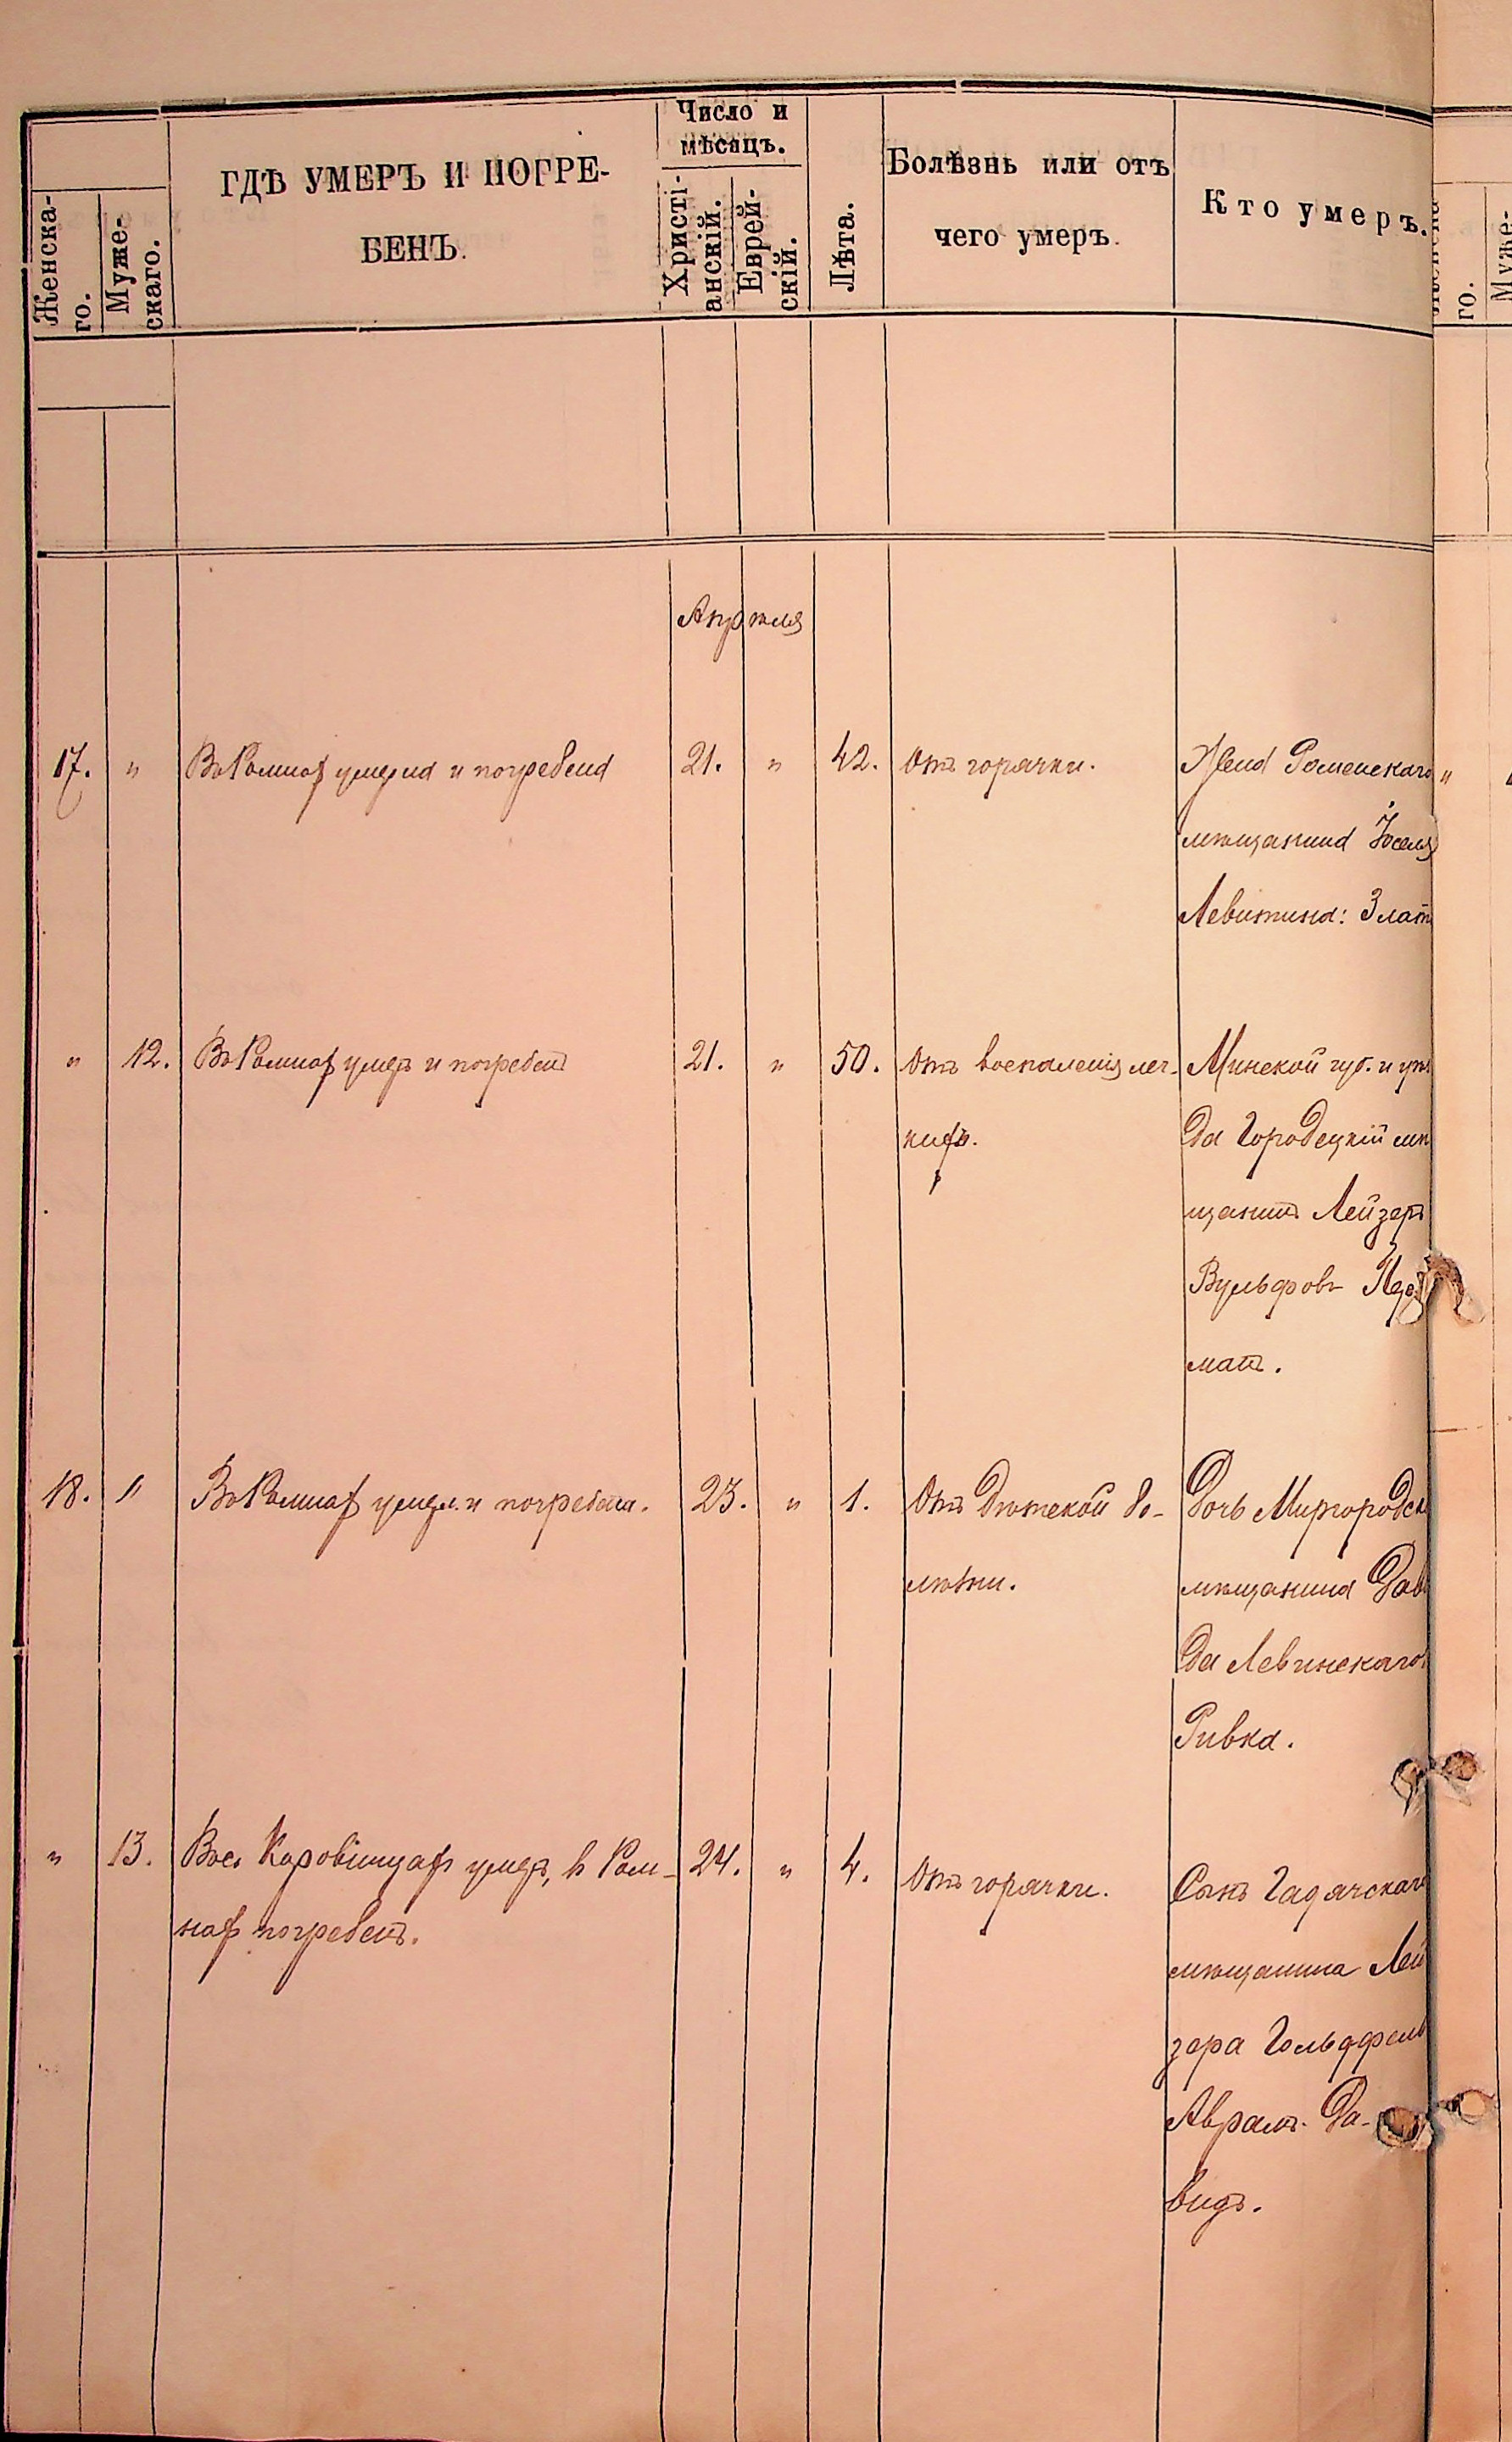 Женска-
го.
Муже-
скаго.
ГДѢ УМЕРЪ И ПОГРЕ-
БЕНЪ.
Число и
мѣсяцъ.
Христі-
анскій.
Еврей-
скій.
Лѣта.
Болѣзнь или отъ
чего умеръ.
Кто умеръ.
го.
Муже-
Апрѣля
17. " Въ Ромнах умерла и погребена 21. " 42. Отъ горячки. Жена Роменскаго "
мѣщанина Іоселя
Левитина: Злат
" 12. Въ Ромнах умеръ и погребенъ 21. " 50. Отъ воспаленія лег- Минской губ. и уѣз
кихъ. да Городецкій мѣ
щанинъ Лейзеръ
Вульфовъ
манъ.
18. " Въ Ромнах умерл. и погребена. 23. " 1. Отъ Дѣтской бо- Дочь Миргородск
лѣзни. мѣщанина Дав
да Левинскаго
Ривка.
" 13. Въ с. Коровинцах умеръ, в Ром- 24. " 4. Отъ горячки. Сынъ Гадячскаго
нах погребенъ. мѣщанина Лей
зера Гольдфель
Аврамъ-Да-
видъ.